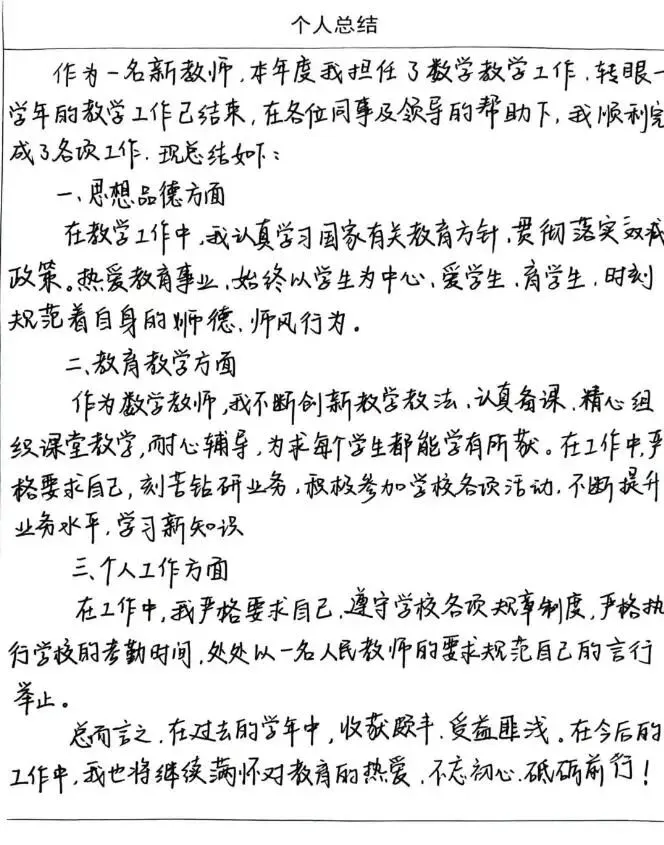 个人总结
作为一名新教师，本年度我担任了数学教学工作，转眼一
学年的教学工作已结束，在各位同事及领导的帮助下，我顺利完
成了各项工作．现总结如下：
一、思想品德方面
在教学工作中，我认真学习国家有关教育方针，贯彻落实双减
政策。热爱教育事业，始终以学生为中心，爱学生、育学生，时刻
规范着自身的师德、师风行为。
二、教育教学方面
作为数学教师，我不断创新教学教法、认真备课、精心组
织课堂教学，耐心辅导，力求每个学生都能学有所获。在工作中，严
格要求自己，刻苦钻研业务，积极参加学校各项活动，不断提升
业务水平，学习新知识
三、个人工作方面
在工作中，我严格要求自己、遵守学校各项规章制度，严格执
行学校的考勤时间，处处以一名人民教师的要求规范自己的言行
举止。
总而言之，在过去的学年中，收获颇丰，受益匪浅。在今后的
工作中，我也将继续满怀对教育的热爱，不忘初心，砥砺前行！